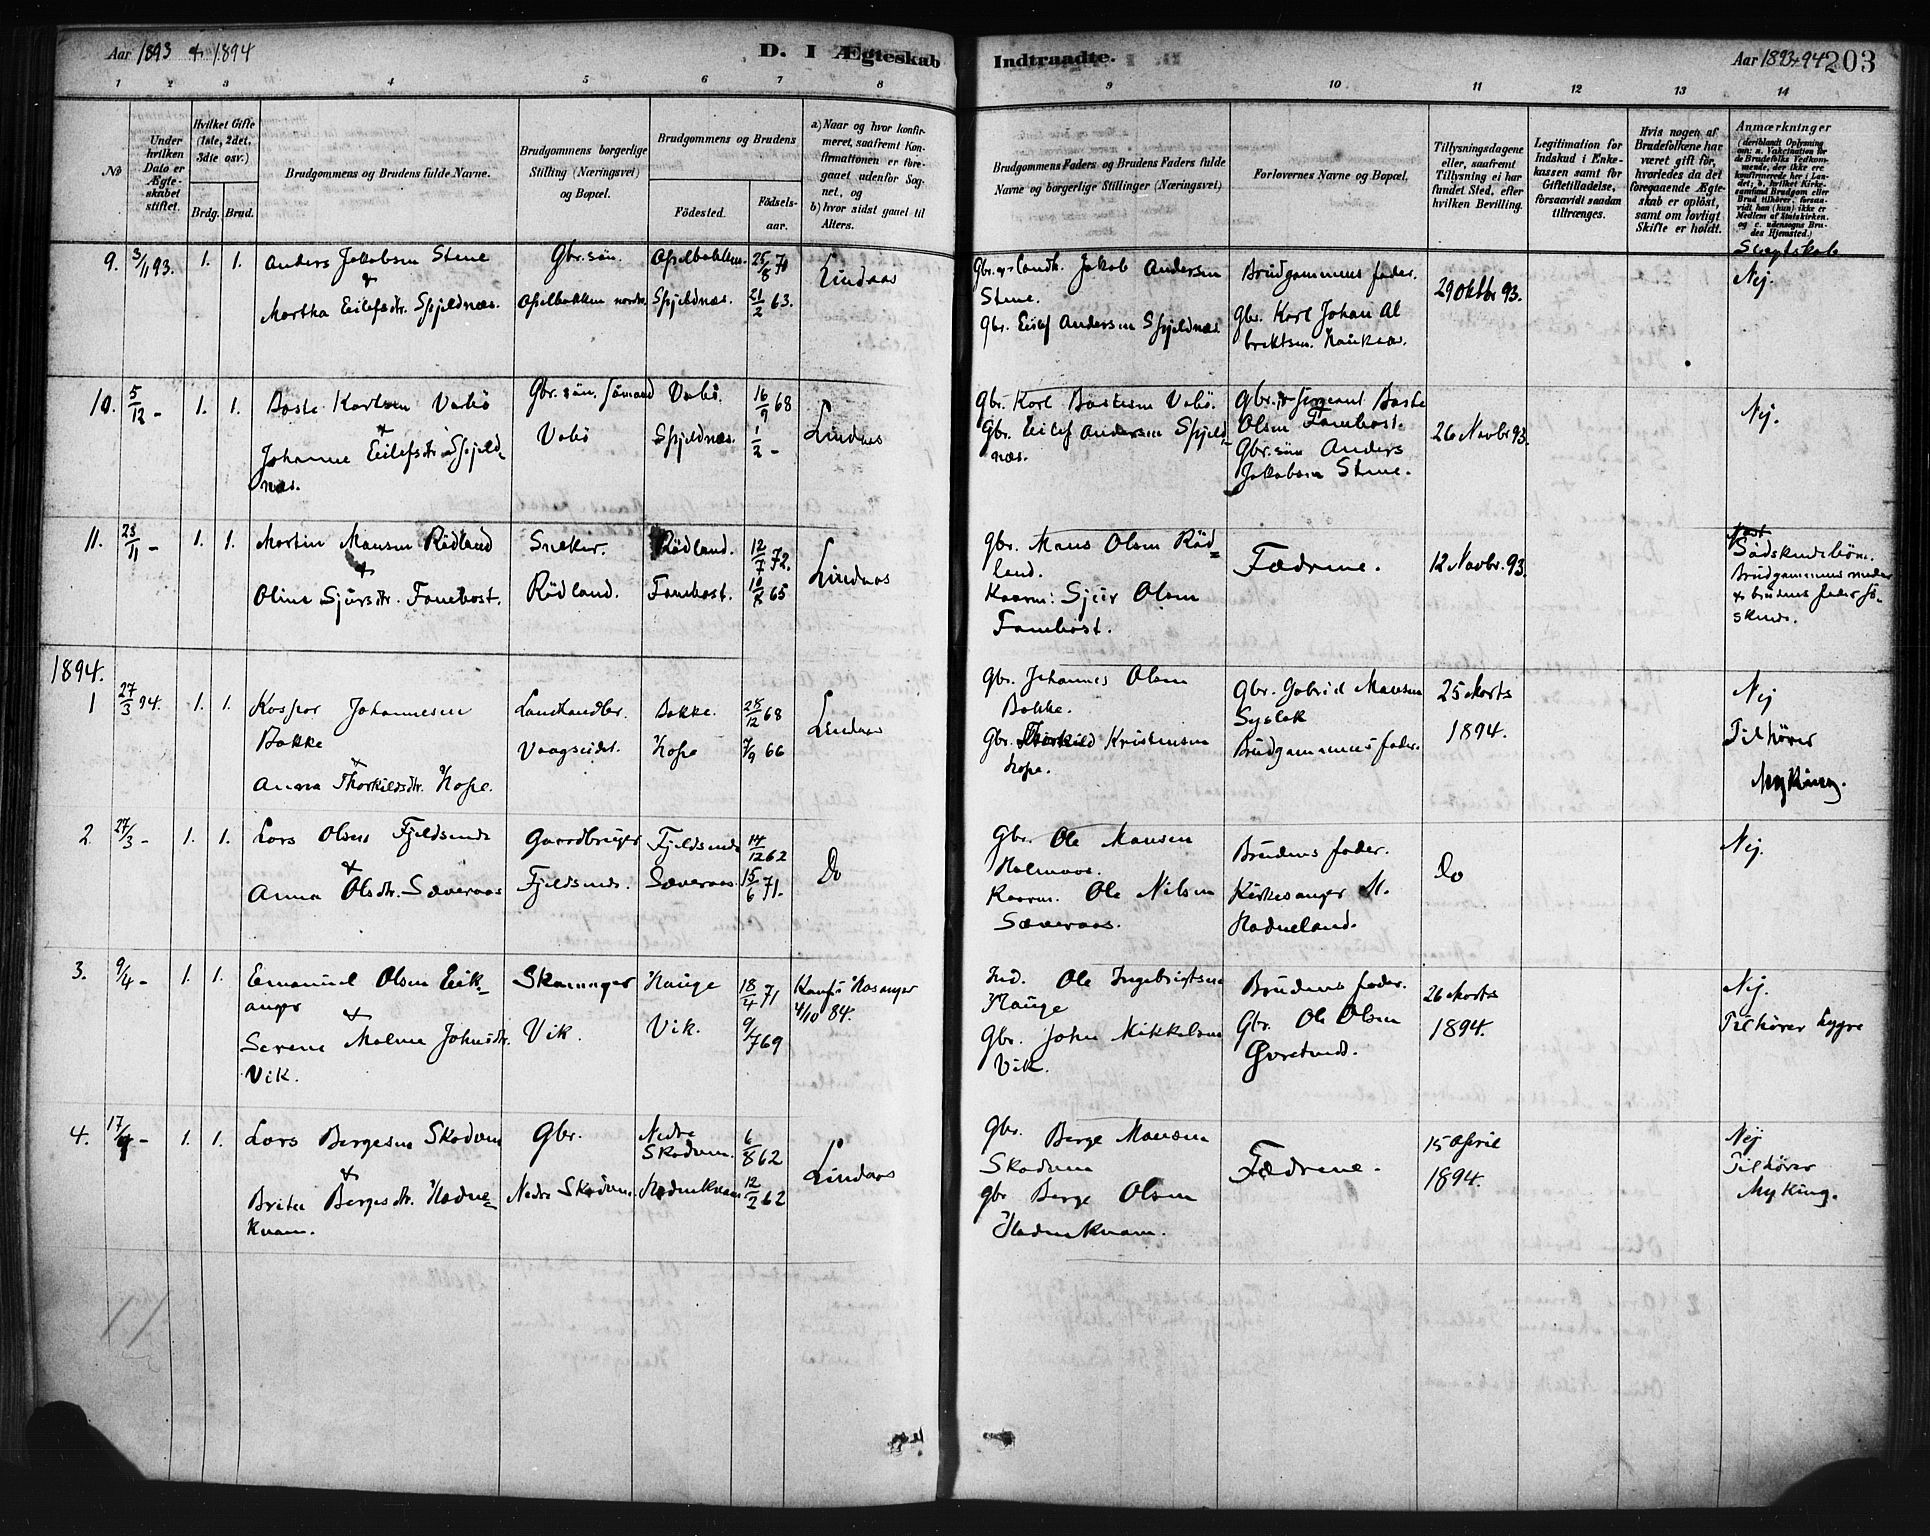 Aar 1893 & 1894
D. I Ægteskab
Indtraadte.
Aar 1893 & 94
203
1 2 3 4 5 6 7 8
9 10 11 12 13 14
No
Under hvilken Dato er Ægteskabet stiftet.
Hvilket Gifte (1ste, 2det, 3die osv.)
Brdg. Brud.
Brudgommens og Brudens fulde Navne.
Brudgommens borgerlige Stilling (Næringsvei) og Bopæl.
Brudgommens og Brudens
Fødested.
Fødselsaar.
a) Naar og hvor konfirmeret, saafremt Konfirmationen er foregaaet udenfor Sognet, og
b) hvor sidst gaaet til Alters.
Brudgommens Faders og Brudens Faders fulde Navne og borgerlige Stillinger (Næringsvei)
Forlovernes Navne og Bopæl.
Tillysningsdagene eller, saafremt Tillysning ei har fundet Sted, efter hvilken Bevilling.
Legitimation for Indskud i Enkekassen samt for Giftetilladelse, forsaavidt saadan tiltrænges.
Hvis nogen af Brudefolkene har været gift før, hvorledes da det foregaaende Ægteskab er opløst, samt om lovligt Skifte er holdt.
Anmærkninger
(deriblandt Oplysning om: a. Vaksination for de Brudefolks Vedkommende, der ikke ere konfirmerede her i Landet; b. hvilket Kirkesamfund Brudgom eller Brud tilhører, forsaavidt han (hun) ikke er Medlem af Statskirken, og c. udensogns Brudes Hjemsted.)
Slægtskab
9. 3/11 93. 1. 1.
Anders Jakobsen Stene
&
Martha Eilefsdtr. Spjeldnæs.
Gbr. søn.
Apelbakken nordre
Apelbakken. 25/8 70
Spjeldnæs. 21/2 63.
Lindaas
Gbr. & Landh. Jakob Andersen
Stene.
Gbr. Eilef Andersen Spjeldnæs
Brudgommens fader.
Gbr. Karl Johan Al
brektsen.
29 Oktbr 93.
Nej.
10. 5/12 - 1. 1.
Baste Karlsen Vabø
&
Johanne Eilefsdtr Spjeld-
næs.
Gbr. søn. Sømand
Vabø
Vabø. 16/9 68
Spjeldnæs. 1/2 -
Lindaas
Gbr. Karl Bastesen Vabø.
Gbr. Eilef Andersen Spjeld-
næs.
Gbr. & Sergeant Baste
Olsen Fanebost.
Gbr. søn Anders
Jakobsen Stene.
26 Novbr 93.
Nej.
11. 23/11 - 1. 1.
Martin Mansen Rødland
&
Oline Sjursdtr. Fanebost.
Sneker.
Rødland.
Rødland. 12/7 72.
Fanebost. 10/8 65
Lindaas
Gbr. Mans Olsen Rød=
land.
Kaarm: Sjur Olsen
Fanebost.
Fædrene.
12 Novbr. 93.
Sødskendebørn.
Brudgommens moder
& brudens fader sø-
skende.
1894.
1 27/3 94. 1. 1.
Kaspar Johannesen
Bakke
&
Anna Thorkildsdtr. Hope.
Landhandler.
Vaagseidet.
Bakke. 28/12 68
Hope 7/9 66
Lindaas
Gbr. Johannes Olsen
Bakke.
Gbr. Thorkild Kristensen
Hope.
Gbr. Gabriel Mansen
Syslak
Brudgommens fader.
25 Marts
1894.
Nej
Tilhører
Myking.
2 27/3 - 1. 1.
Lars Olsen Fjeldsende
&
Anna Olsdtr. Sæveraas
Gaardbruger
Fjeldsende.
Fjeldsende 14/12 62
Sæveraas 15/6 71.
Do
Gbr. Ole Mansen
Holmaas.
Kaarm. Ole Nilsen
Sæveraas.
Brudens fader.
Kirkesanger M.
Hadneland.
Do
Nej.
3. 9/4 - 1. 1.
Emanuel Olsen Eik-
anger
&
Serene Malene Johnsdtr.
Vik.
Skomager
Vik.
Hauge 18/4 71
Vik. 9/7 69
Konf. i Hosanger
4/10 84.
Ind. Ole Ingebrigtsen
Hauge
Gbr. John Mikkelsen
Vik.
Brudens fader.
Gbr. Ole Olsen
Øvretveit.
26 Marts
1894.
Nej.
Tilhører Lygre
4. 17/4 - 1. 1.
Lars Bergesen Skodven
&
Brita Bergesdtr. Hadne-
kvam.
Gbr.
Nedre Skodven
Nedre
Skodven. 6/8 62
Hadnekvam 12/2 62
Lindaas
Gbr. Berge Mansen
Skodven
Gbr Berge Olsen
Hadnekvam.
Fædrene.
15 April
1894.
Nej
Tilhører
Myking.